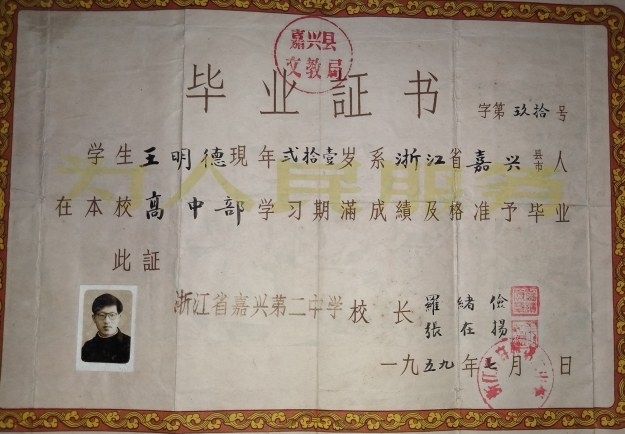 嘉兴县
文教局
毕业証书
字第玖拾号
学生王明德現年弍拾壹岁系浙江省嘉兴县市人
为人民服务
在本校高中部学习期滿成績及格准予毕业
此証
浙江省嘉兴第二中学校长羅緒儉
張在揚
一九五九年七月 日